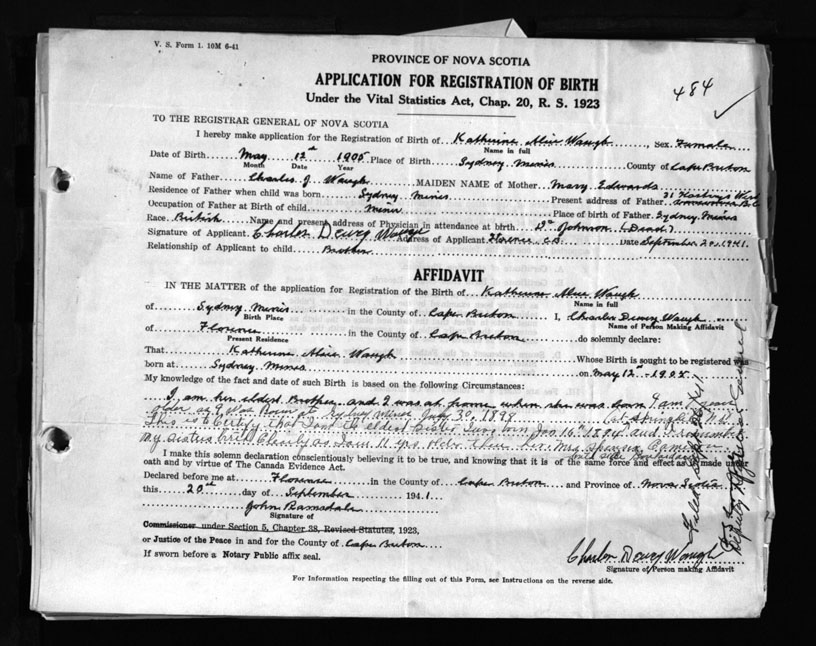 V. S. Form 1. 10M 6-41
PROVINCE OF NOVA SCOTIA
APPLICATION FOR REGISTRATION OF BIRTH
484
Under the Vital Statistics Act, Chap. 20, R. S. 1923
TO THE REGISTRAR GENERAL OF NOVA SCOTIA
I hereby make application for the Registration of Birth of Katherine Waugh, Sex Female
Name in full
Date of Birth May 12th 1905 Place of Birth Sydney Mines County of Cape Breton
Month Date Year
Name of Father Charles J. Waugh MAIDEN NAME of Mother Mary Edwards
Residence of Father when child was born Sydney Mines Present address of Father 31 Hastings West B.C.
Occupation of Father at Birth of child Miner Place of birth of Father Sydney Mines
Race British Name and present address of Physician in attendance at birth Dr Johnson (Dead)
Signature of Applicant Charles Dewey Waugh Address of Applicant Florence C.B. Date September 20, 1941.
Relationship of Applicant to child Brother
AFFIDAVIT
IN THE MATTER of the application for Registration of the Birth of Katherine Waugh
Name in full
of Sydney Mines in the County of Cape Breton I, Charles Dewey Waugh
Birth Place Name of Person Making Affidavit
of Florence in the County of Cape Breton do solemnly declare:
Present Residence
That Katherine Waugh Whose Birth is sought to be registered was
born at Sydney Mines on May 12th - 1905.
My knowledge of the fact and date of such Birth is based on the following Circumstances:
I am her eldest Brother and I was at home when she was born I am years
older as I was Born at Sydney Mines July 30, 1898
This is to Certify that I am the eldest sister I was born Jan 16th 1894 and I remember
my sisters birth Clearly as I am 11 yrs older than her Mrs
I make this solemn declaration conscientiously believing it to be true, and knowing that it is of the same force and effect as if made under
oath and by virtue of The Canada Evidence Act.
Declared before me at Florence in the County of Cape Breton and Province of Nova Scotia
this 20th day of September 1941
John Ramsdale
Signature of
Commissioner under Section 5, Chapter 38, Revised Statutes, 1923,
or Justice of the Peace in and for the County of Cape Breton
If sworn before a Notary Public affix seal.
Charles Dewey Waugh
Signature of Person making Affidavit
For Information respecting the filling out of this Form, see Instructions on the reverse side.
Filed Sept 26/41
Deputy Registrar General